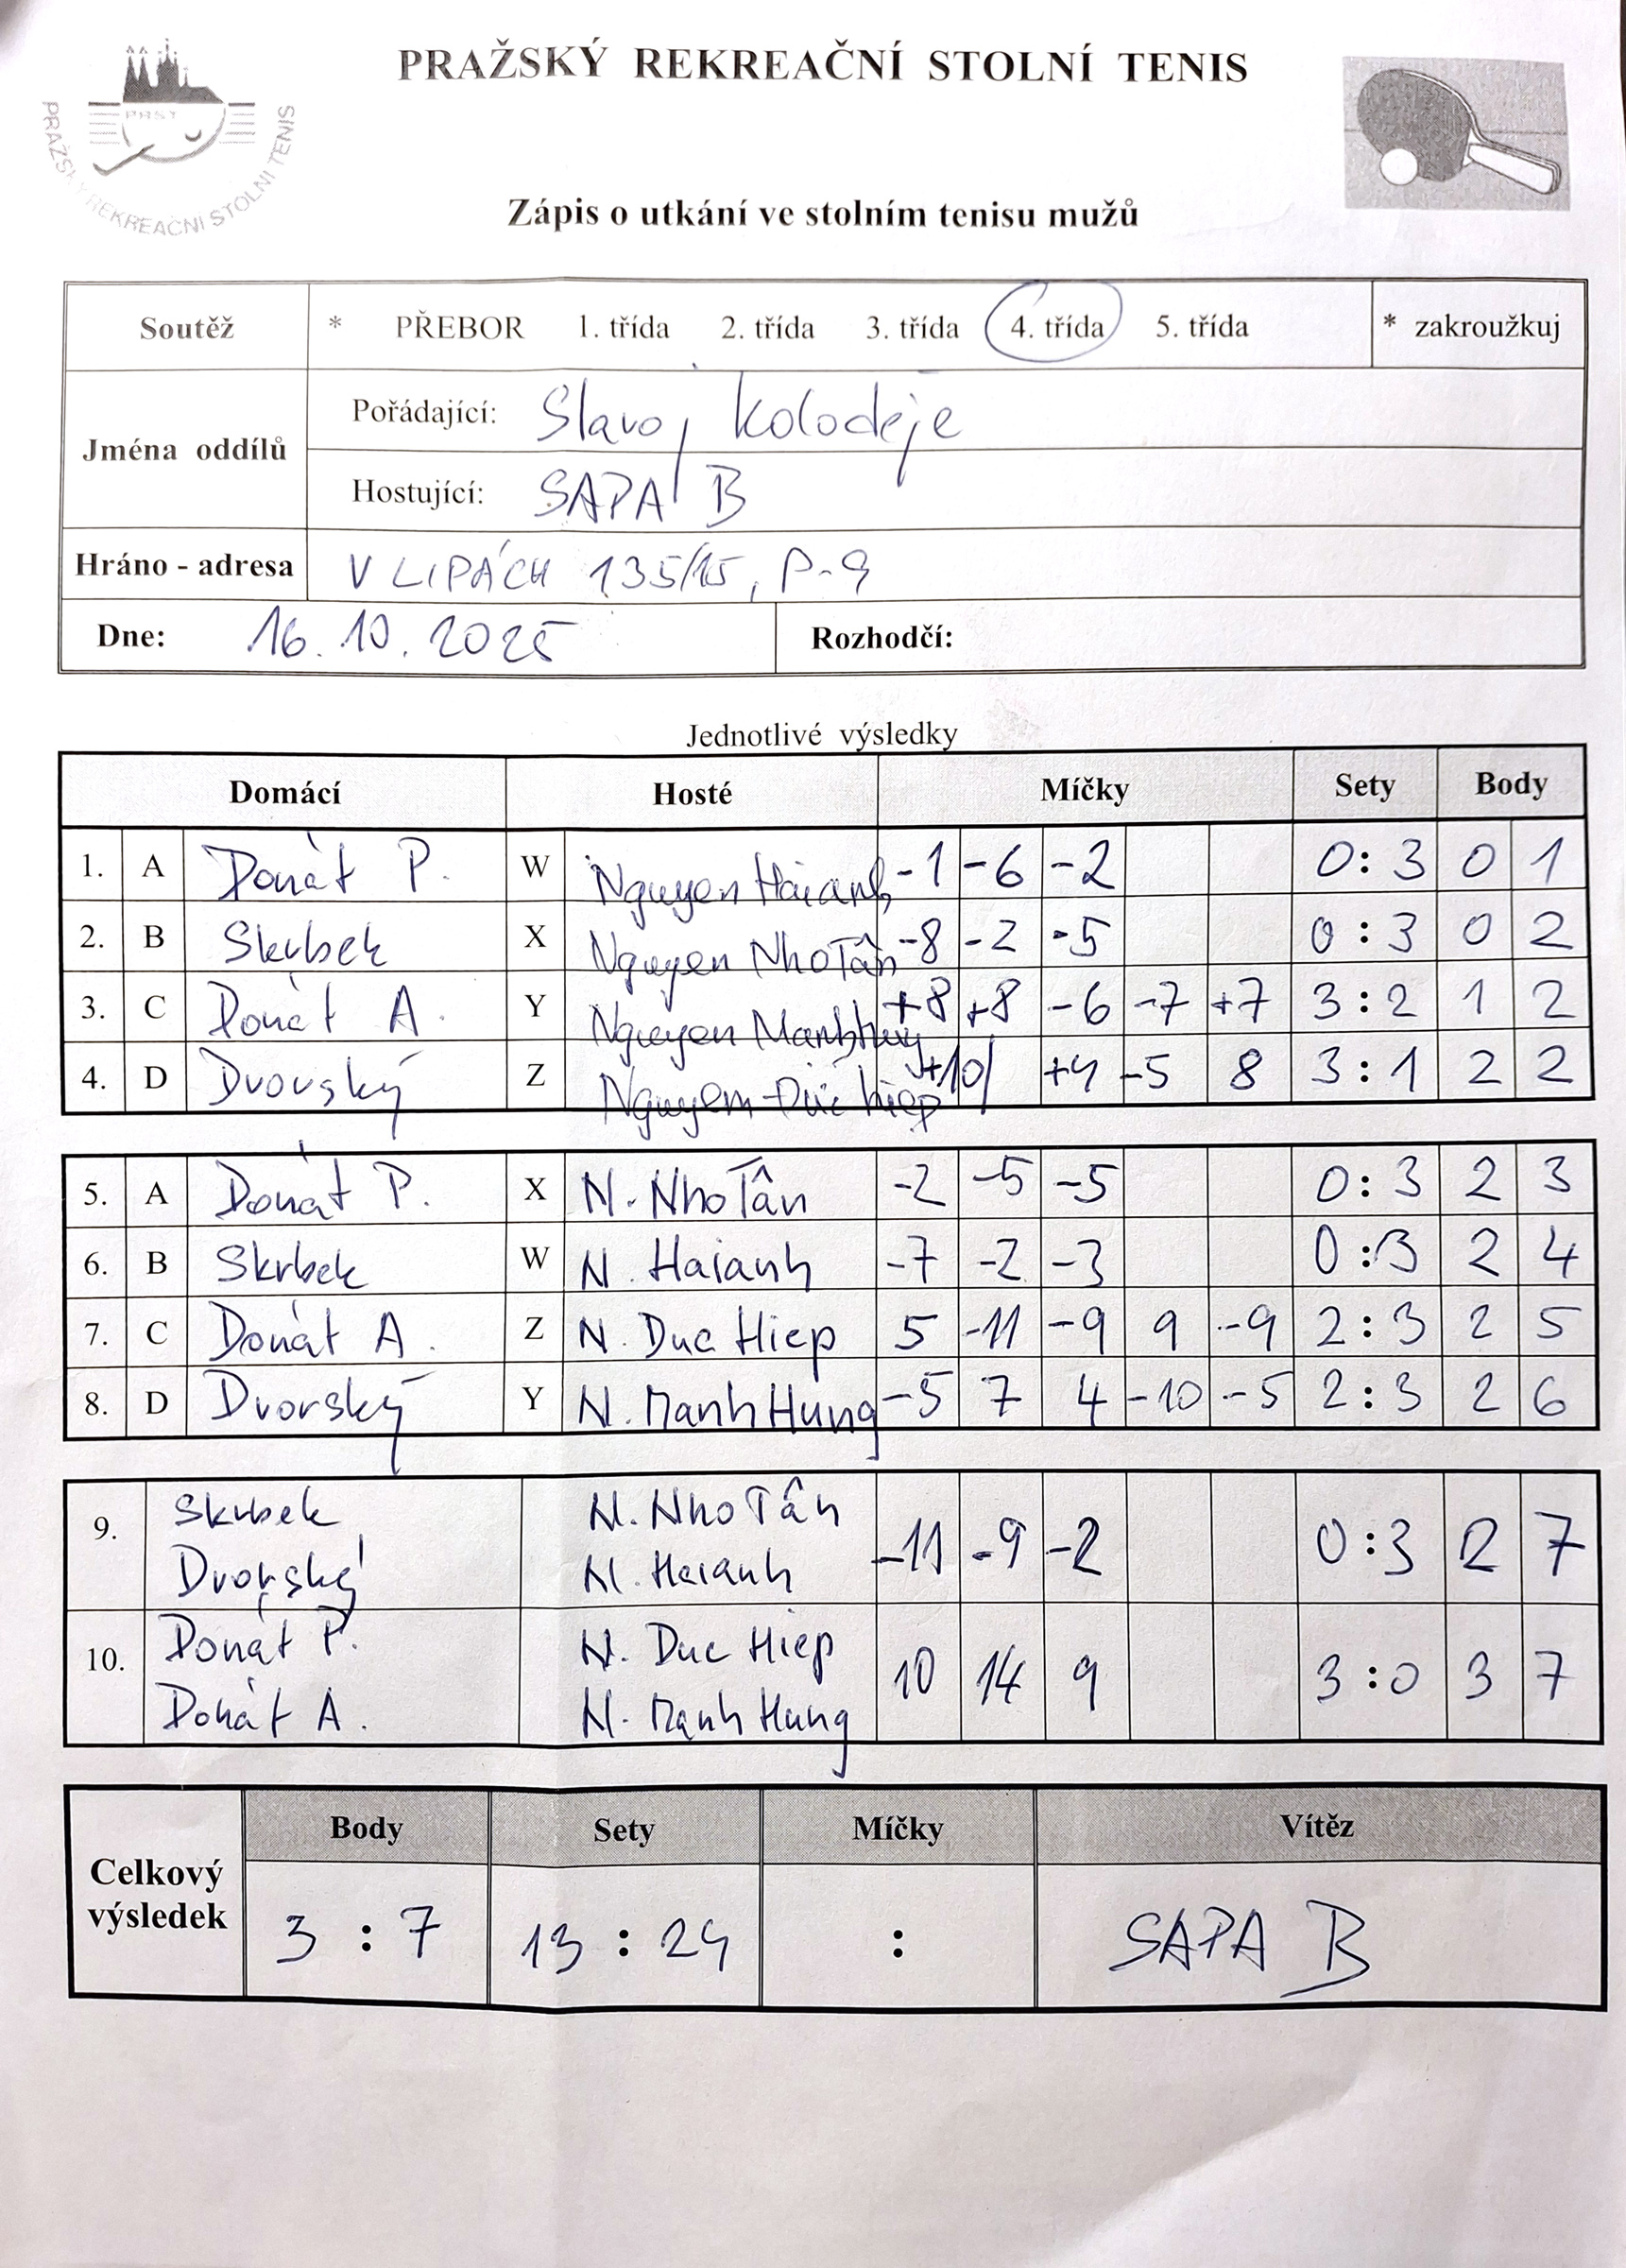 PRAŽSKÝ REKREAČNÍ STOLNÍ TENIS
PRST
PRAŽSKÝ REKREAČNÍ STOLNÍ TENIS
Zápis o utkání ve stolním tenisu mužů
Soutěž * PŘEBOR 1. třída 2. třída 3. třída 4. třída 5. třída * zakroužkuj
Jména oddílů
Pořádající: Slavoj Koloděje
Hostující: SAPA B
Hráno - adresa V LIPÁCH 135/15, P-9
Dne: 16. 10. 2025 Rozhodčí:
Jednotlivé výsledky
Domácí Hosté Míčky Sety Body
1. A Donát P. W Nguyen Haianh -1 -6 -2 0:3 0 1
2. B Skrbek X Nguyen Nho Tân -8 -2 -5 0:3 0 2
3. C Donát A. Y Nguyen Manh Hung +8 +8 -6 -7 +7 3:2 1 2
4. D Dvorský Z Nguyen Đức hiep +10 +4 -5 8 3:1 2 2
5. A Donát P. X N. Nho Tân -2 -5 -5 0:3 2 3
6. B Skrbek W N. Haianh -7 -2 -3 0:3 2 4
7. C Donát A. Z N. Duc Hiep 5 -11 -9 9 -9 2:3 2 5
8. D Dvorský Y N. Manh Hung -5 7 4 -10 -5 2:3 2 6
9. Skrbek N. Nho Tân -11 -9 -2 0:3 2 7
Dvorský N. Haianh
10. Donát P. N. Duc Hiep 10 14 9 3:0 3 7
Donát A. N. Manh Hung
Celkový výsledek
Body Sety Míčky Vítěz
3 : 7 13 : 24 : SAPA B